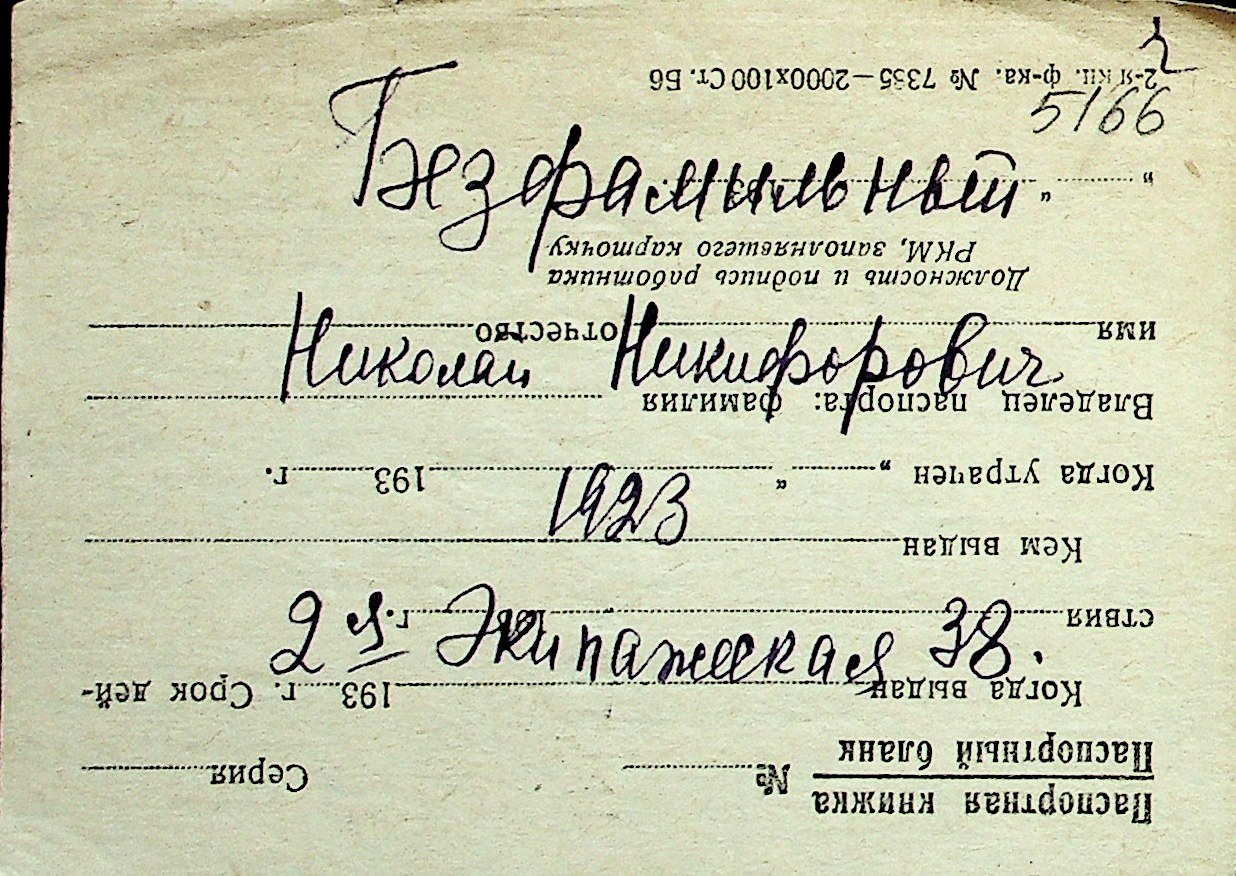 5166
Безфамильный
Николай Никифорович
1923
2я Экипажеская 38.
Паспортная книжка
Паспортный бланк
№ Серия
Когда выдан 193 г. Срок дей-
ствия г.
Кем выдан
Когда утрачен „ “ 193 г.
Владелец паспорта: фамилия
имя отчество
Должность и подпись работника
РКМ, заполнявшего карточку
„ “
2-я кн. ф-ка. № 7335—2000х100 Ст. Б6